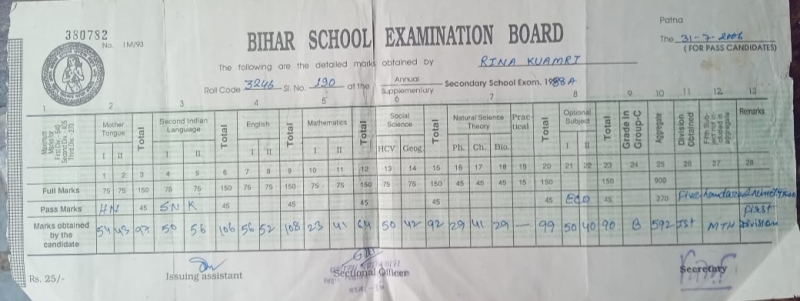 380782
No. 1M/93
BIHAR SCHOOL EXAMINATION BOARD
Patna
The 31-7-2006
(FOR PASS CANDIDATES)
The following are the detailed marks obtained by RINA KUAMRI
Roll Code 3246 Sl. No. 190 at the Annual Supplementary Secondary School Exam. 1988 A
1 2 3 4 5 6 7 8 9 10 11 12 13
Mother Tongue Total Second Indian Language Total English Total Mathematics Total Social Science Total Natural Science Theory Practical Total Optional Subject Total Grade in Group-C Aggregate Division obtained Remarks
I II I II I II I II HCV Geog. Ph. Ch. Bio. I II
1 2 3 4 5 6 7 8 9 10 11 12 13 14 15 16 17 18 19 20 21 22 23 24 25 26 27 28
Full Marks 75 75 150 75 75 150 75 75 150 75 75 150 75 75 150 45 45 45 15 150 150 900
Pass Marks HN 45 SNK 45 45 45 45 45 ECO 45 270 Five hundred
Marks obtained by the candidate 54 43 97 50 56 106 56 52 108 23 41 64 50 42 92 29 41 29 — 99 50 40 90 B 592 Ist MTH First Division
Rs. 25/-
Issuing assistant
Sectional Officer
Secretary